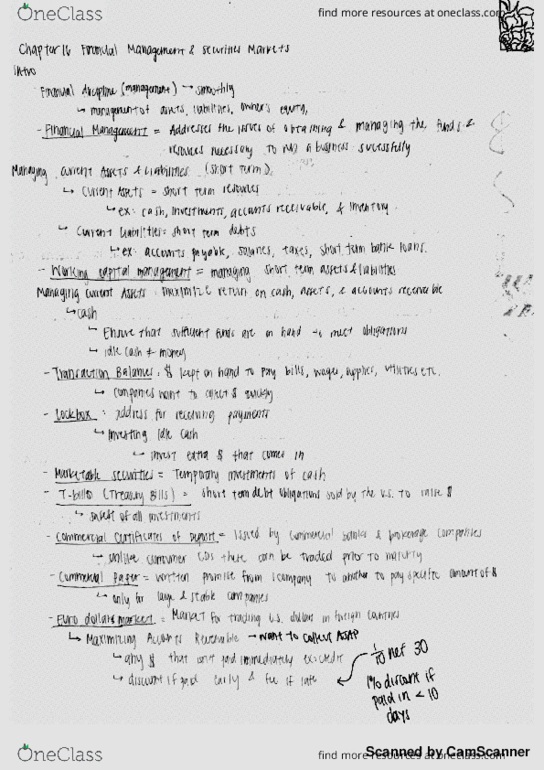 OneClass
find more resources at oneclass.com
Chapter 16 Financial Management & Securities Markets
Intro
- Financial discipline (management) → smoothly
↳ management of assets, liabilities, owner's equity,
- Financial Management = Addresses the issues of obtaining & managing the funds &
resources necessary to run a business sucessfully
Managing current Assets & Liabilities (short term)
↳ Current Assets = short term resources
↳ ex: cash, investments, accounts receivable, & inventory
↳ Current liabilities = short term debts
↳ ex: accounts payable, salaries, taxes, short term bank loans.
- Working capital management = managing short term assets & liabilities
Managing Current Assets: maximize return on cash, assets, & accounts receivable
↳ cash
↳ Ensure that sufficient funds are on hand to meet obligations
↳ idle cash ≠ money
- Transaction Balances: $ kept on hand to pay bills, wages, supplies, utilities etc.
↳ companies want to collect $ quickly
- Lockbox: address for receiving payments
↳ Investing Idle Cash
↳ invest extra $ that comes in
- Marketable securities = Temporary investments of cash
- T-bills (Treasury Bills) = short term debt obligations sold by the U.S. to raise $
↳ safest of all investments
- Commercial Certificates of Deposit = issued by commercial banks & brokerage companies
↳ unlike consumer CDs these can be traded prior to maturity
- Commercial Paper = written promise from 1 company to another to pay specific amount of $
↳ only for large & stable companies
- Euro dollar market = Market for trading U.S. dollars in foreign countries
↳ Maximizing Accounts Receivable → want to collect ASAP
↳ any $ that isn't paid immediately is credit
↳ discount if paid early & fee if late
1/10 net 30
1% discount if
paid in < 10
days
OneClass
find more resources at oneclass.com
Scanned by CamScanner